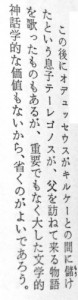 この後にオデュッセウスがキルケーとの間に儲け
たという息子テーレゴノスが、父を訪ねて来る物語
を歌ったものもあるが、重要でもなく大した文学的
神話学的な価値もないから、省くのがよいであろう。